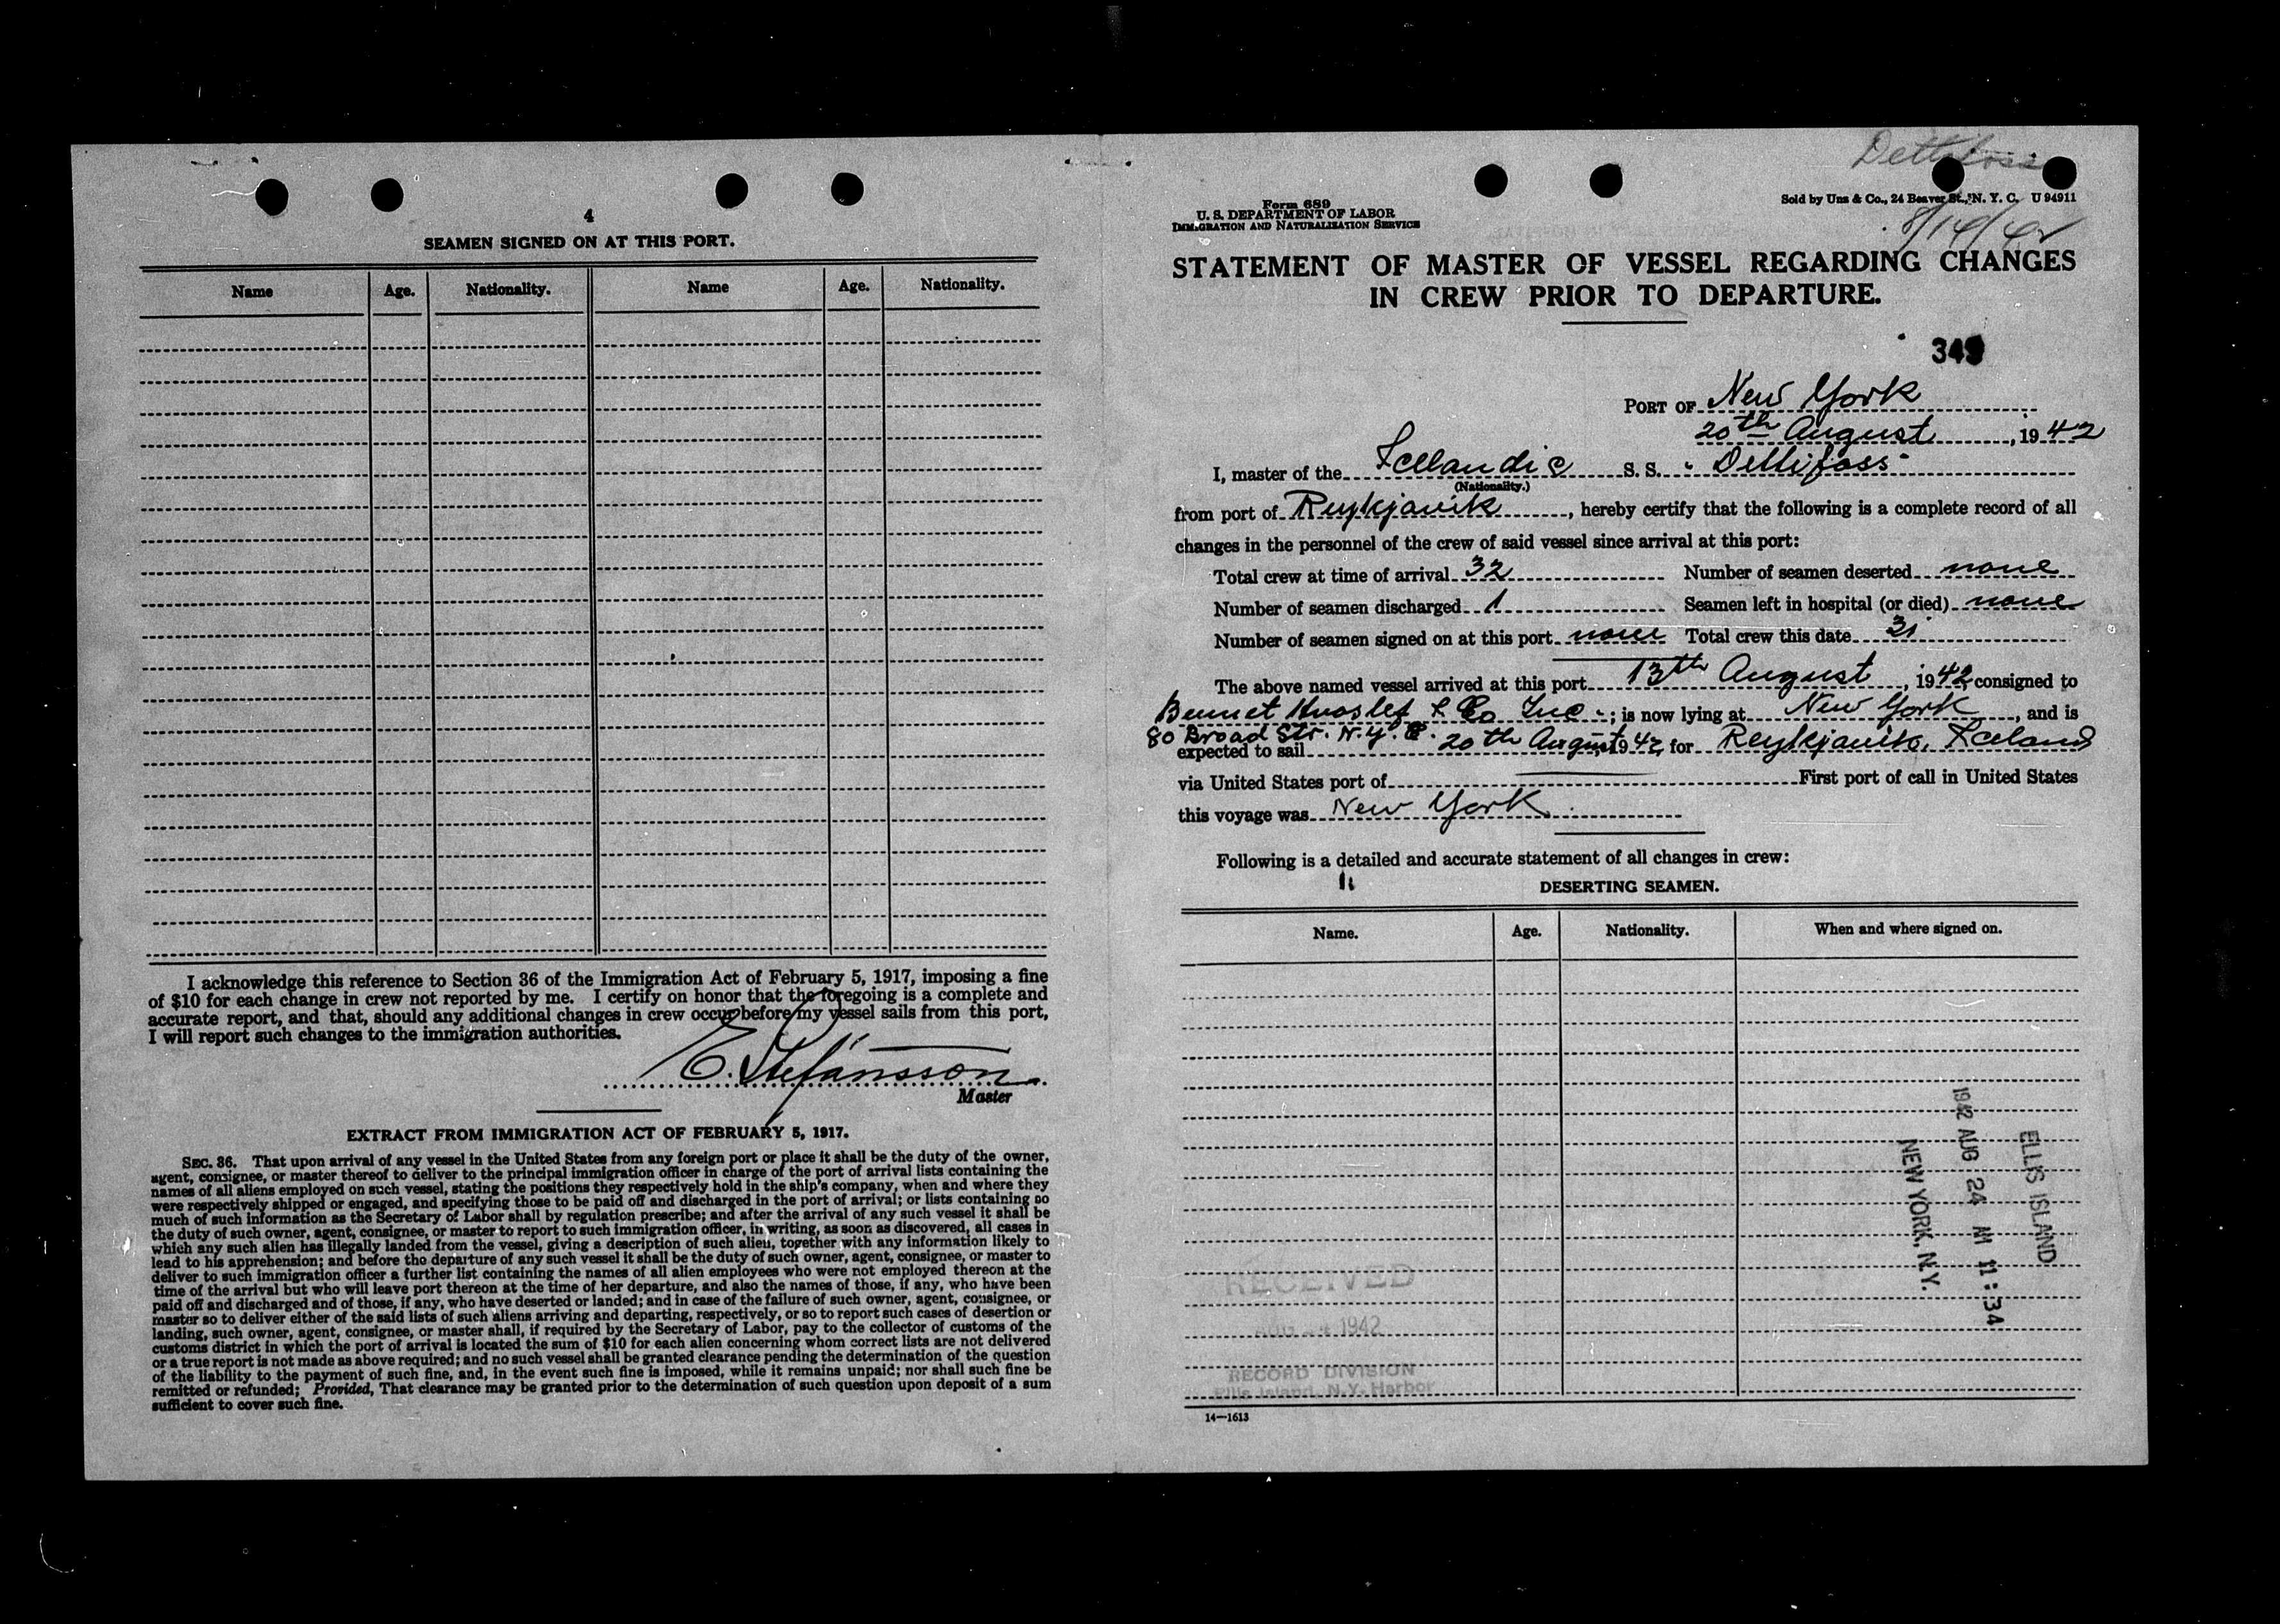 4
SEAMEN SIGNED ON AT THIS PORT.
Name Age. Nationality. Name Age. Nationality.
I acknowledge this reference to Section 36 of the Immigration Act of February 5, 1917, imposing a fine
of $10 for each change in crew not reported by me. I certify on honor that the foregoing is a complete and
accurate report, and that, should any additional changes in crew occur before my vessel sails from this port,
I will report such changes to the immigration authorities.
E. Stefánsson
Master
EXTRACT FROM IMMIGRATION ACT OF FEBRUARY 5, 1917.
SEC. 36. That upon arrival of any vessel in the United States from any foreign port or place it shall be the duty of the owner,
agent, consignee, or master thereof to deliver to the principal immigration officer in charge of the port of arrival lists containing the
names of all aliens employed on such vessel, stating the positions they respectively hold in the ship's company, when and where they
were respectively shipped or engaged, and specifying those to be paid off and discharged in the port of arrival; or lists containing so
much of such information as the Secretary of Labor shall by regulation prescribe; and after the arrival of any such vessel it shall be
the duty of such owner, agent, consignee, or master to report to such immigration officer, in writing, as soon as discovered, all cases in
which any such alien has illegally landed from the vessel, giving a description of such alien, together with any information likely to
lead to his apprehension; and before the departure of any such vessel it shall be the duty of such owner, agent, consignee, or master to
deliver to such immigration officer a further list containing the names of all alien employees who were not employed thereon at the
time of the arrival but who will leave port thereon at the time of her departure, and also the names of those, if any, who have been
paid off and discharged and of those, if any, who have deserted or landed; and in case of the failure of such owner, agent, consignee, or
master so to deliver either of the said lists of such aliens arriving and departing, respectively, or so to report such cases of desertion or
landing, such owner, agent, consignee, or master shall, if required by the Secretary of Labor, pay to the collector of customs of the
customs district in which the port of arrival is located the sum of $10 for each alien concerning whom correct lists are not delivered
or a true report is not made as above required; and no such vessel shall be granted clearance pending the determination of the question
of the liability to the payment of such fine, and, in the event such fine is imposed, while it remains unpaid; nor shall such fine be
remitted or refunded; Provided, That clearance may be granted prior to the determination of such question upon deposit of a sum
sufficient to cover such fine.
Dettifoss
Form 689
U. S. DEPARTMENT OF LABOR
IMMIGRATION AND NATURALIZATION SERVICE
Sold by Unz & Co., 24 Beaver St., N. Y. C. U 94911
8/14/42
STATEMENT OF MASTER OF VESSEL REGARDING CHANGES
IN CREW PRIOR TO DEPARTURE.
PORT OF New York
20th August, 1942
I, master of the Icelandic S. S. "Dettifoss"
(Nationality.)
from port of Reykjavik, hereby certify that the following is a complete record of all
changes in the personnel of the crew of said vessel since arrival at this port:
Total crew at time of arrival 32 Number of seamen deserted none
Number of seamen discharged 1 Seamen left in hospital (or died) none
Number of seamen signed on at this port none Total crew this date 31
The above named vessel arrived at this port 13th August, 1942, consigned to
Bennet & Co Inc.; is now lying at New York, and is
80 Broad Str. N.Y.C.
expected to sail 20th August, 1942, for Reykjavik, Iceland
via United States port of First port of call in United States
this voyage was New York.
Following is a detailed and accurate statement of all changes in crew:
DESERTING SEAMEN.
Name. Age. Nationality. When and where signed on.
ELLIS ISLAND
1942 AUG 24 AM 11:34
NEW YORK, N.Y.
RECEIVED
AUG 24 1942
RECORD DIVISION
Ellis Island, N.Y. Harbor
14—1613